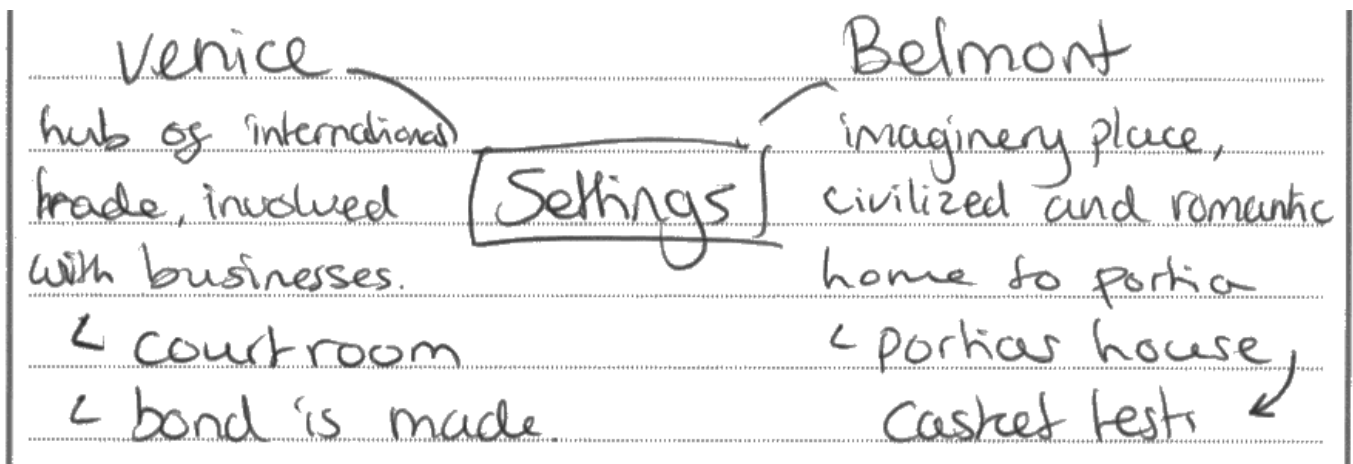 Venice
hub of international
trade, involved
with businesses.
courtroom
bond is made.
Settings
Belmont
imaginery place,
civilized and romantic
home to portia
portias house,
Casket test